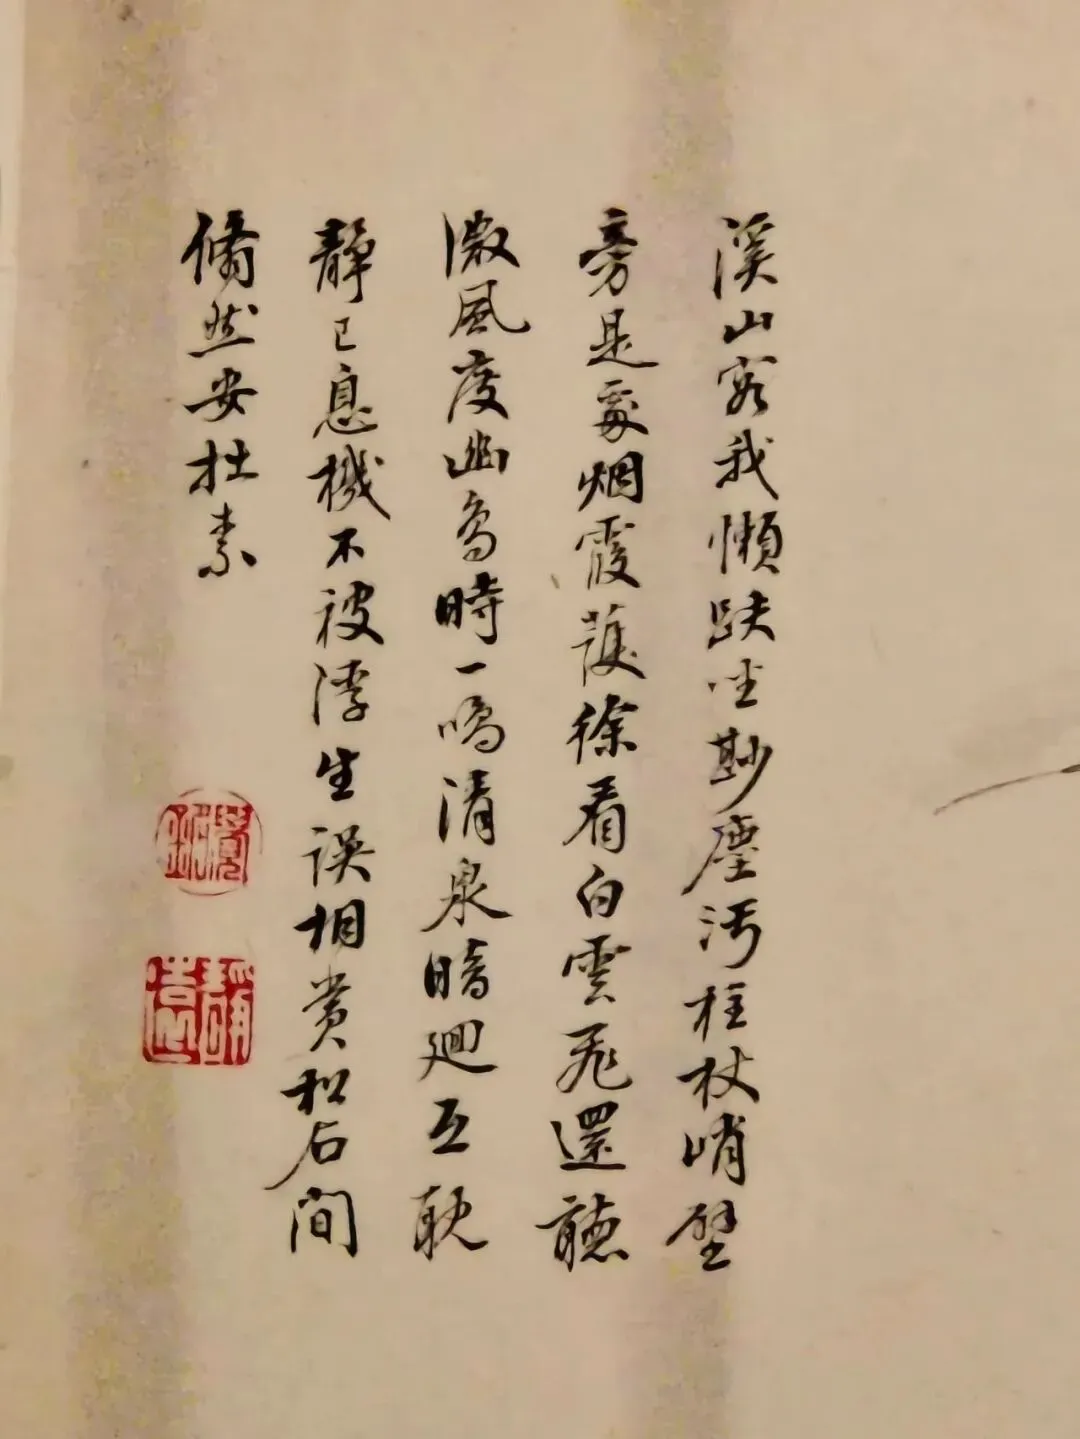 溪山容我懶趺坐尠塵污柱杖峭壁
旁是處烟霞護徐看白雲飛還聽
微風度幽鳥時一鳴清泉暗迴互耽
靜已息機不被浮生誤相賞松石間
翛然安拙素